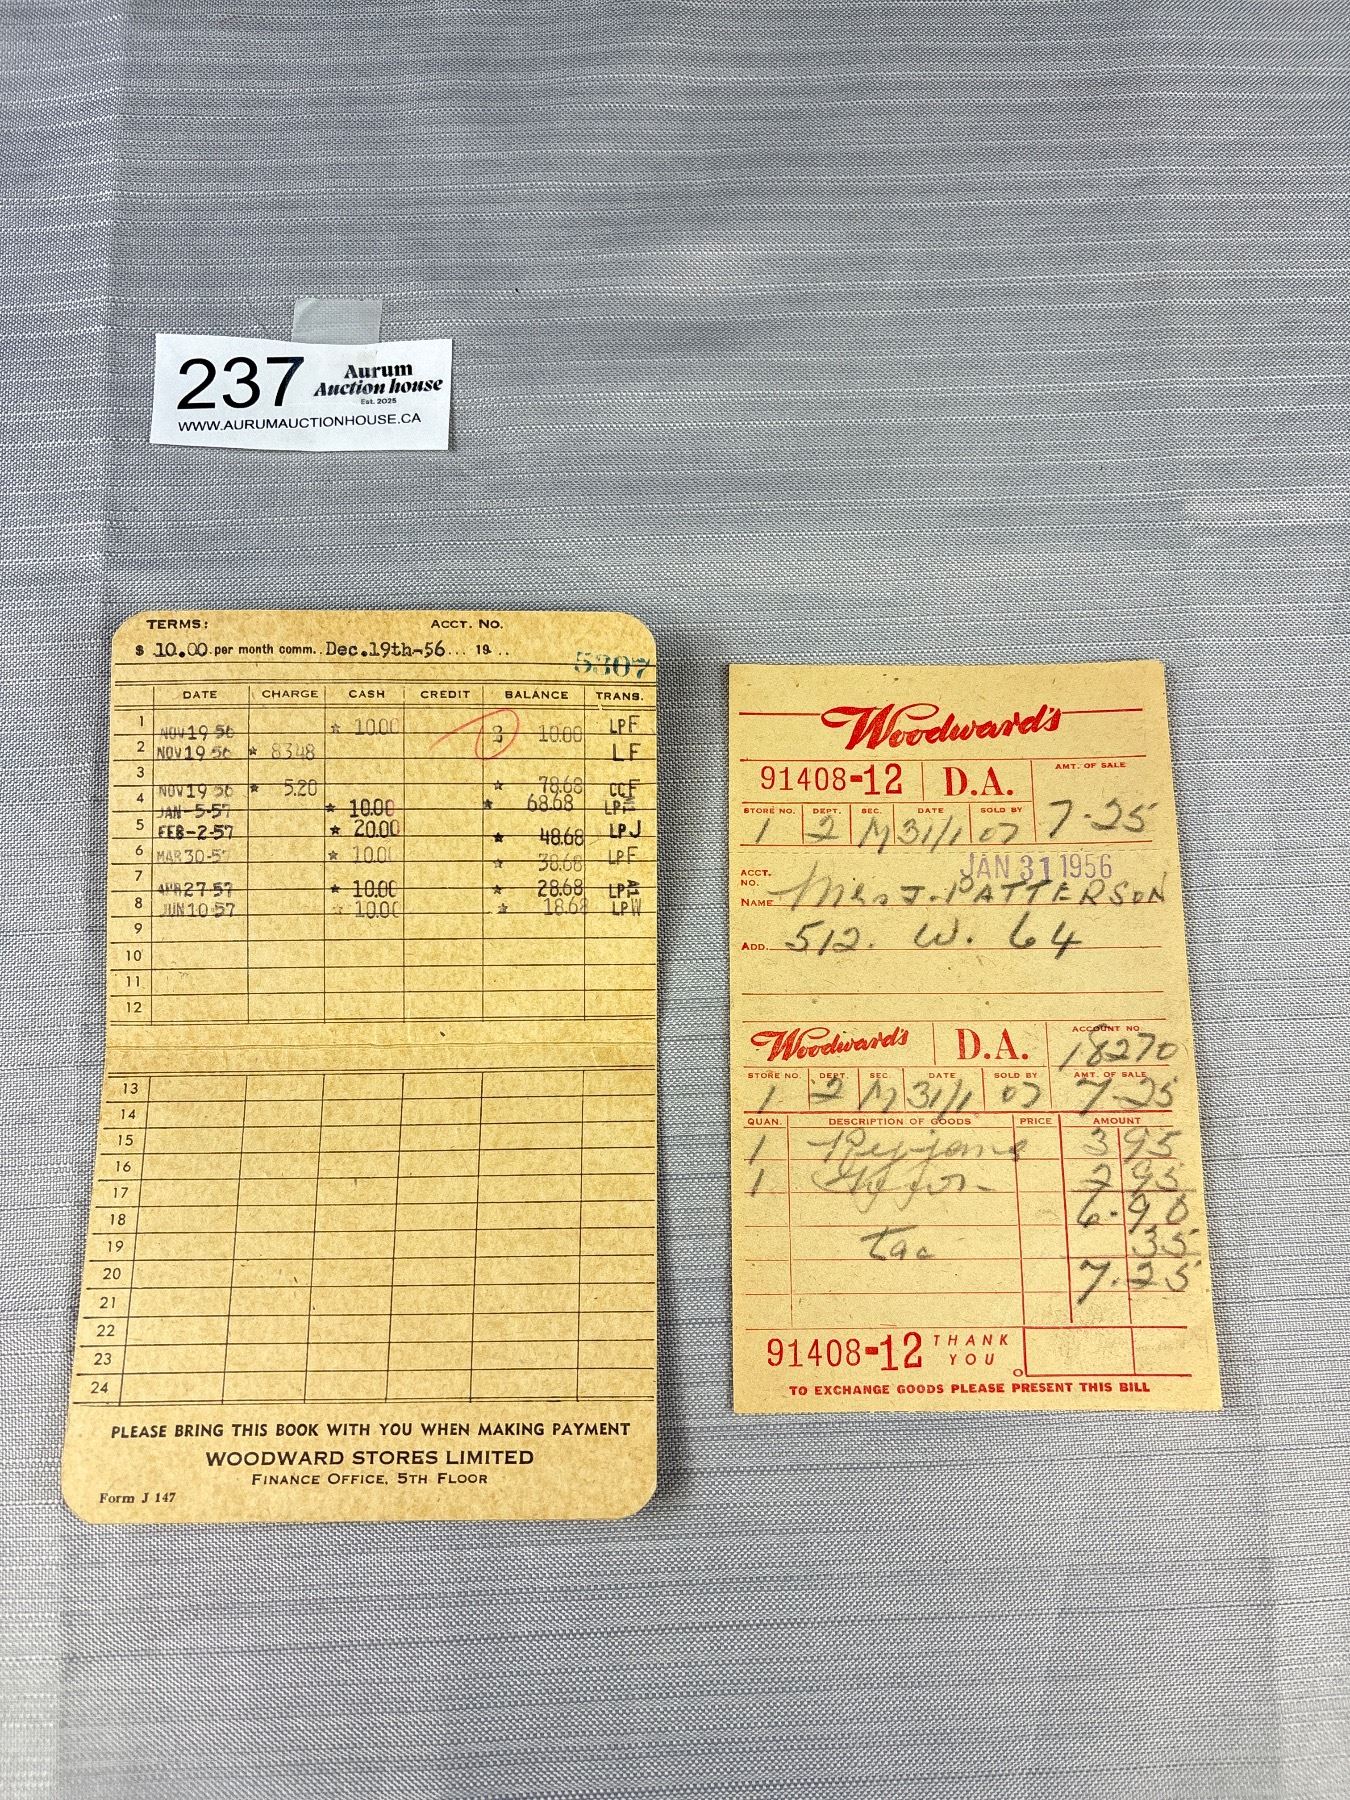 237 Aurum
Auction house
Est. 2025
WWW.AURUMAUCTIONHOUSE.CA
TERMS: ACCT. NO.
$ 10.00 per month comm. . Dec.19th-56 ... 19 . .
5307
DATE CHARGE CASH CREDIT BALANCE TRANS.
1 NOV 19 56 * 10.00 10.00 LPF
2 NOV 19 56 * 83.48 LF
3 NOV 19 56 * 5.20 * 78.68 CCF
4 JAN-5-57 * 10.00 * 68.68 LP
5 FEB-2-57 * 20.00 * 48.68 LPJ
6 MAR 30-57 * 10.00 * 38.68 LPF
7 APR 27-57 * 10.00 * 28.68 LP
8 JUN 10-57 * 10.00 * 18.68 LPW
9
10
11
12
13
14
15
16
17
18
19
20
21
22
23
24
PLEASE BRING THIS BOOK WITH YOU WHEN MAKING PAYMENT
WOODWARD STORES LIMITED
FINANCE OFFICE, 5TH FLOOR
Form J 147
Woodward's
91408-12 D.A. AMT. OF SALE
STORE NO. DEPT. SEC. DATE SOLD BY
1 2 M 31/1 07 7-25
JAN 31 1956
ACCT. NO.
NAME Mrs J. PATTERSON
ADD. 512. W. 64
Woodward's D.A. ACCOUNT NO.
18270
STORE NO. DEPT. SEC. DATE SOLD BY AMT. OF SALE
1 2 M 31/1 07 7-25
QUAN. DESCRIPTION OF GOODS PRICE AMOUNT
1 3 95
1 2 95
6.90
Tac 35
7.25
91408-12 THANK YOU
TO EXCHANGE GOODS PLEASE PRESENT THIS BILL